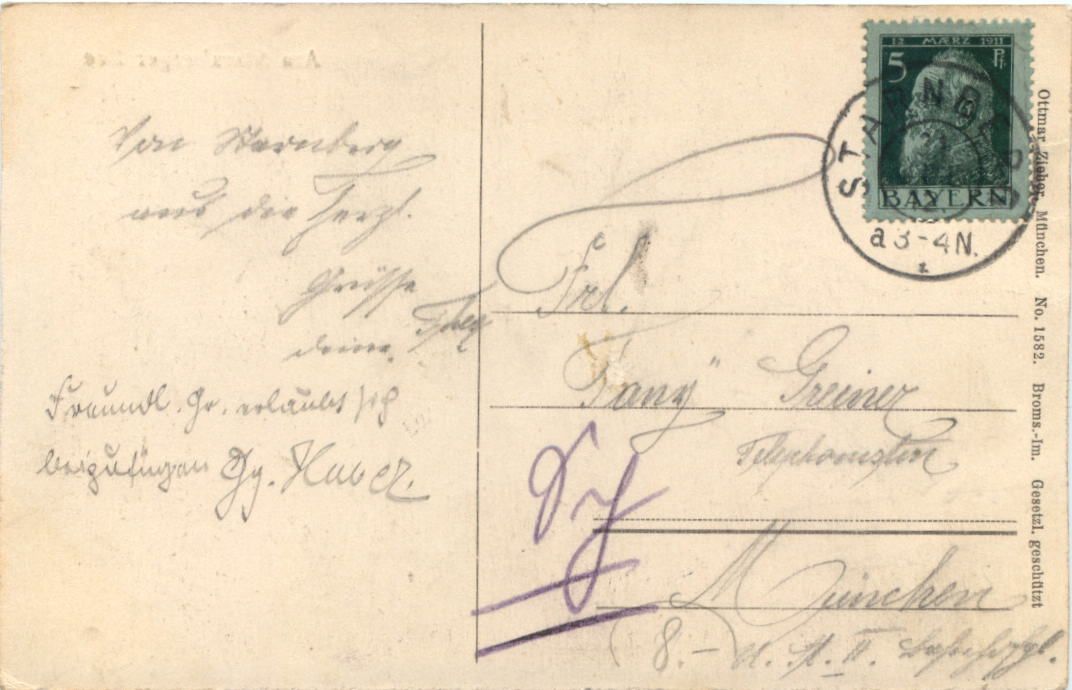 Von Starnberg
aus die herzl.
Grüsse
deine
Freundl. Gr. erlaubt sich
beizufügen Gg. Huber.
12 MÆRZ 1911
5 Pf.
BAYERN
STARNBERG
a 3-4 N.
1
Frl.
"Fany" Greiner
Telephonistin
München
(8.-)
Ottmar Zieher, München. No. 1582. Broms.-Im. Gesetzl. geschützt